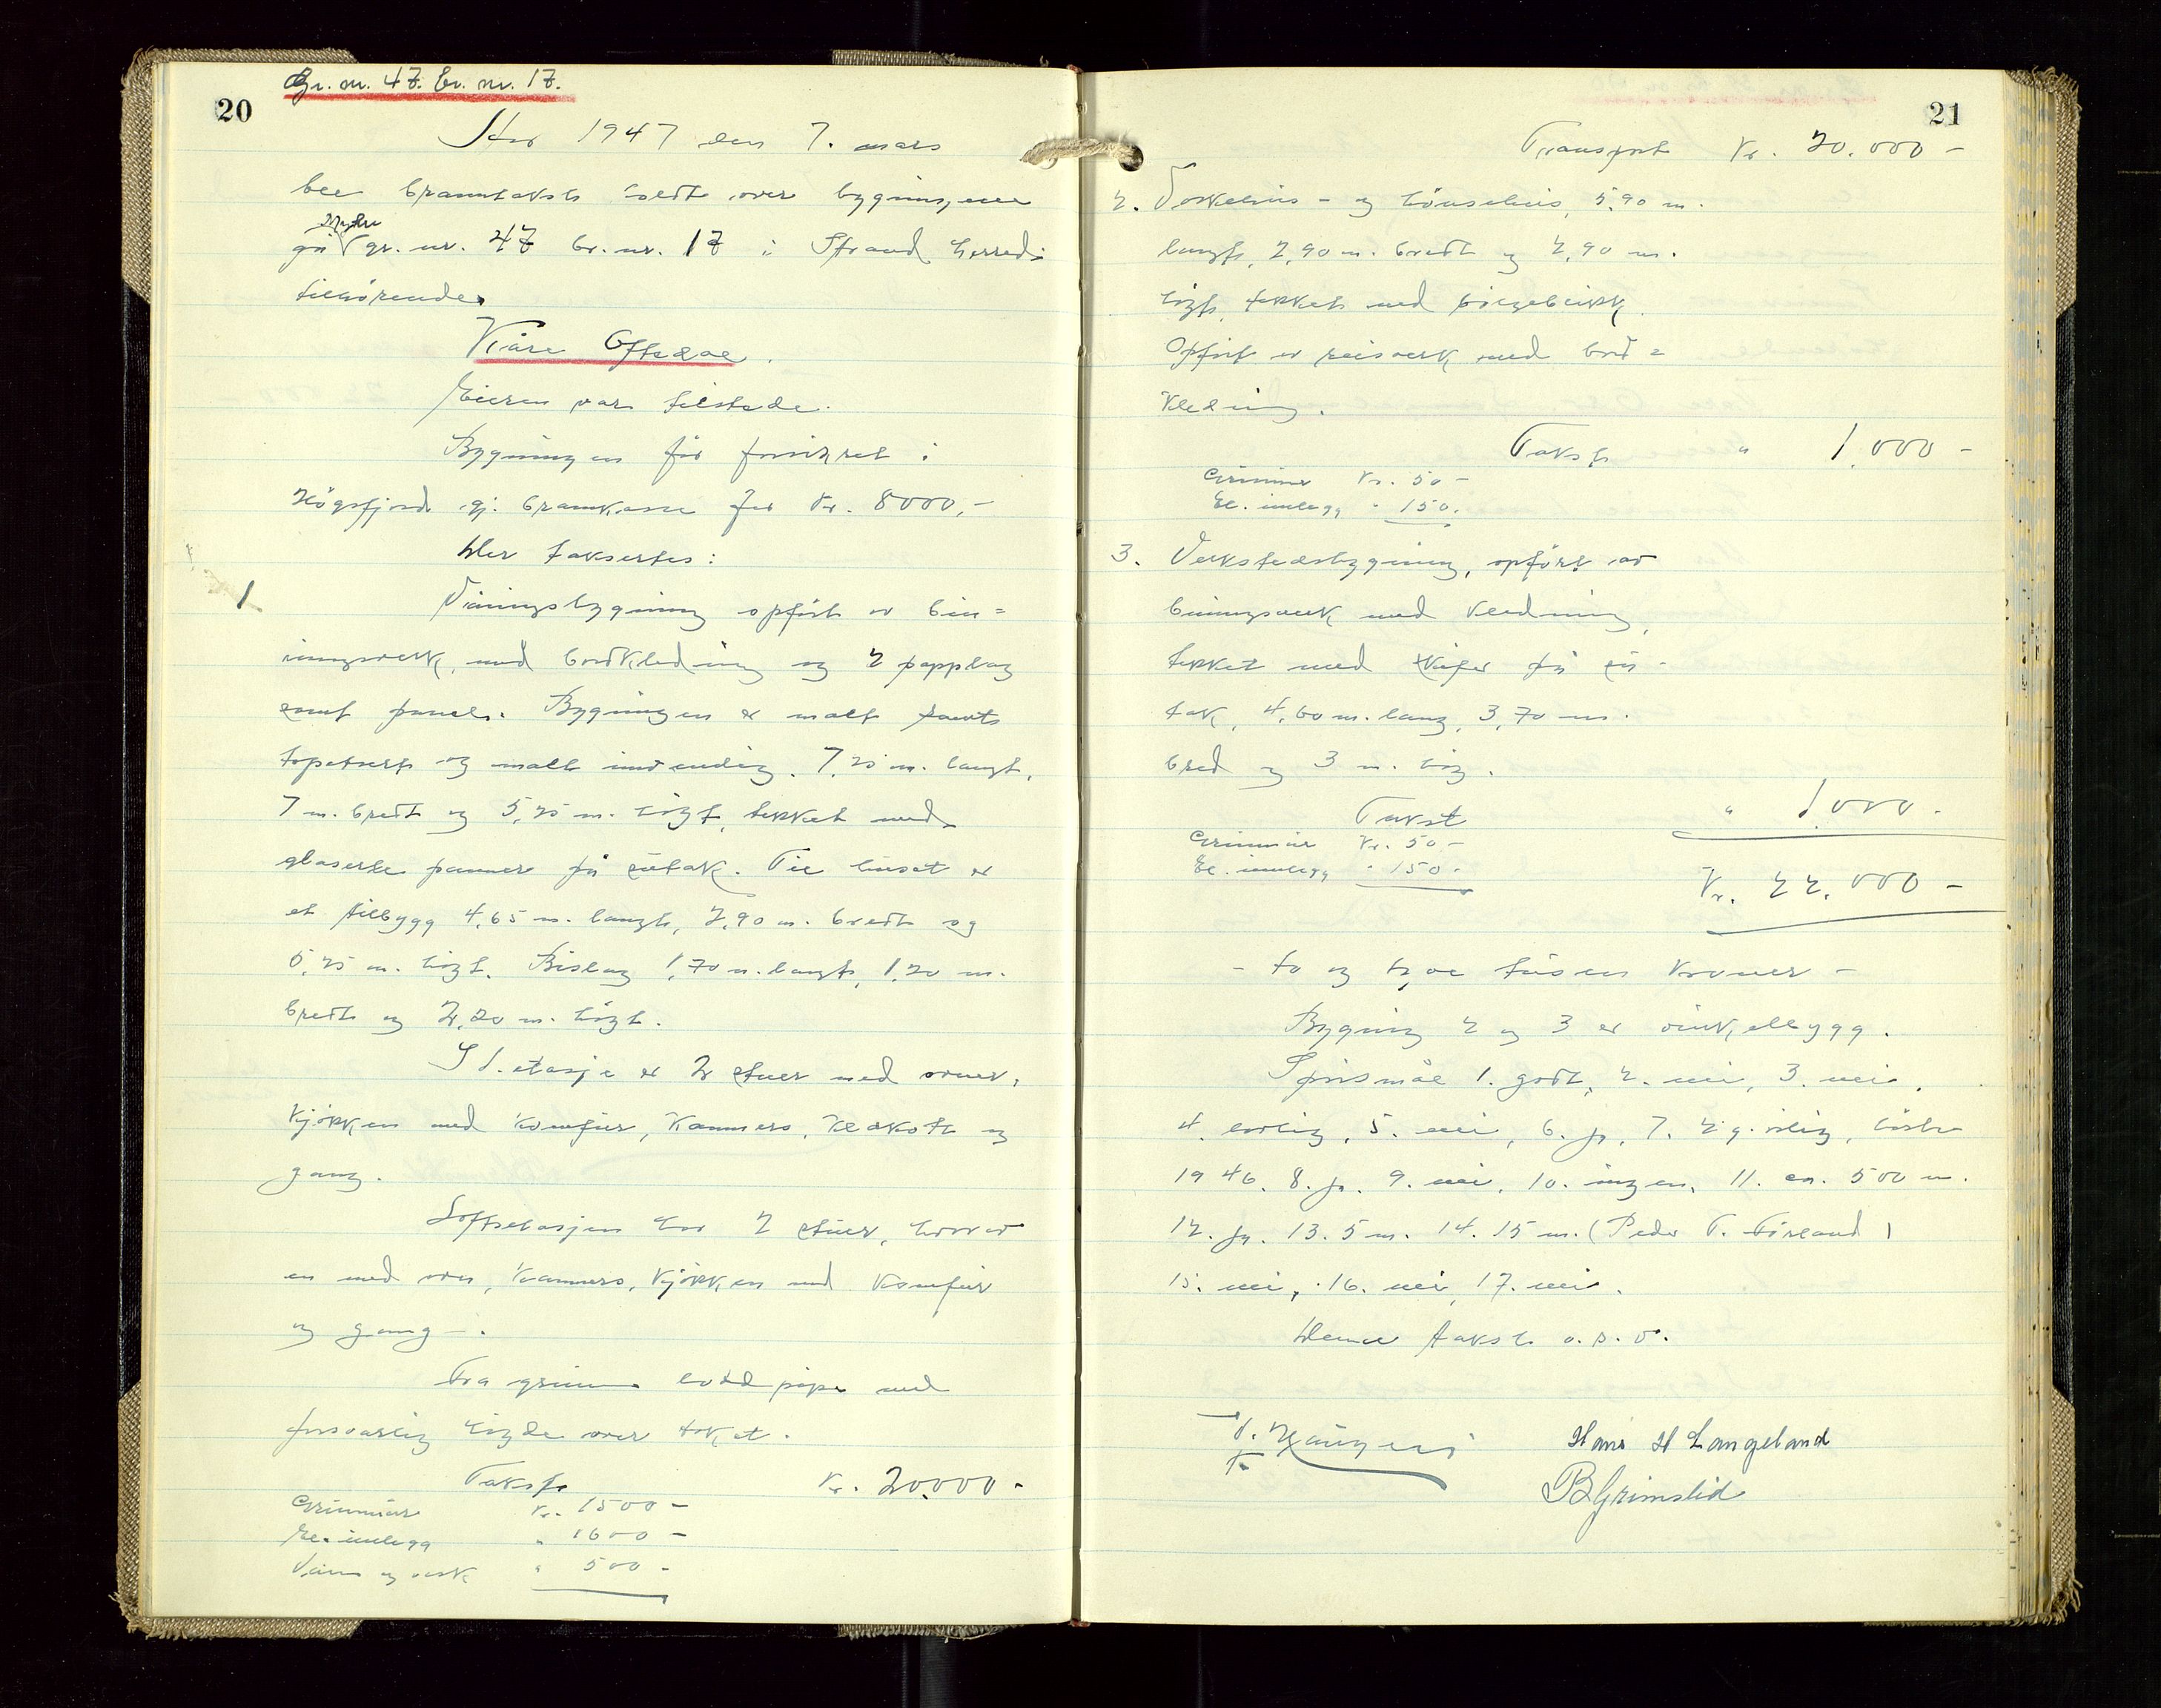 Gr. nr. 47. br. nr. 17.
20
År 1947 den 7. mars
ble branntakst holdt over bygningene
på gr. nr. 47 br. nr. 17 i Strand herred
tilhørende
Kåre Oftedal.
Eieren var tilstede.
Bygningen før forsikret i
Högsfjord gj. brannkasse for kr. 8000,-
Her taksertes:
1 Våningsbygning opført av bin=
ingsverk, med bordkledning og 2 papplag
samt panel. Bygningen er malt samt
tapetsert og malt innvendig. 7,25 m. langt,
7 m. bredt og 5,25 m. högt, tekket med
glaserte panner på sutak. Til huset er
et tilbygg 4,65 m. langt, 2,90 m. bredt og
5,25 m. högt. Bislag 1,70 m. langt, 1,20 m.
bredt og 2,20 m. högt.
I 1. etasje er 2 stuer med ovner,
kjökken med komfur, kammers, klakott og
gang.
Loftsetasjen har 2 stuer, hvorav
en med ovn, kammers, kjökken med komfur
og gang.
Fra grunn murt pipe med
forsvarlig høgde over taket.
Takst kr. 20.000-
Grunnmur kr. 1500-
El. innlegg " 1600-
Vann og vask " 500-
21
Transport kr. 20.000-
2. Torvhus- og hönsehus, 5,90 m.
langt, 2,90 m. bredt og 2,90 m.
högt, tekket med bölgeblikk.
Opført av reisverk med bord=
kledning.
Takst " 1.000-
Grunnmur kr. 50-
El. innlegg " 150.
3. Verkstedsbygning, opført av
bindingsverk med kledning,
tekket med skifer på su-
tak, 4,60 m. lang, 3,70 m.
bred og 3 m. høg.
Takst " 1.000.
Grunnmur kr. 50-
El. innlegg " 150.
Kr. 22.000-
- to og tyve tusen kroner -
Bygning 2 og 3 er vinkelbygg.
Spørsmål 1. godt, 2. nei, 3. nei,
4. lovlig, 5. nei, 6. ja, 7. 2 g. årlig, høst
1946. 8. ja. 9. nei, 10. ingen, 11. ca. 500 m.
12. ja. 13. 5 m. 14. 15 m. (Peder T. Førland)
15. nei, 16. nei, 17. nei.
Denne takst o.s.v.
Hans H Langeland
B Grimslid